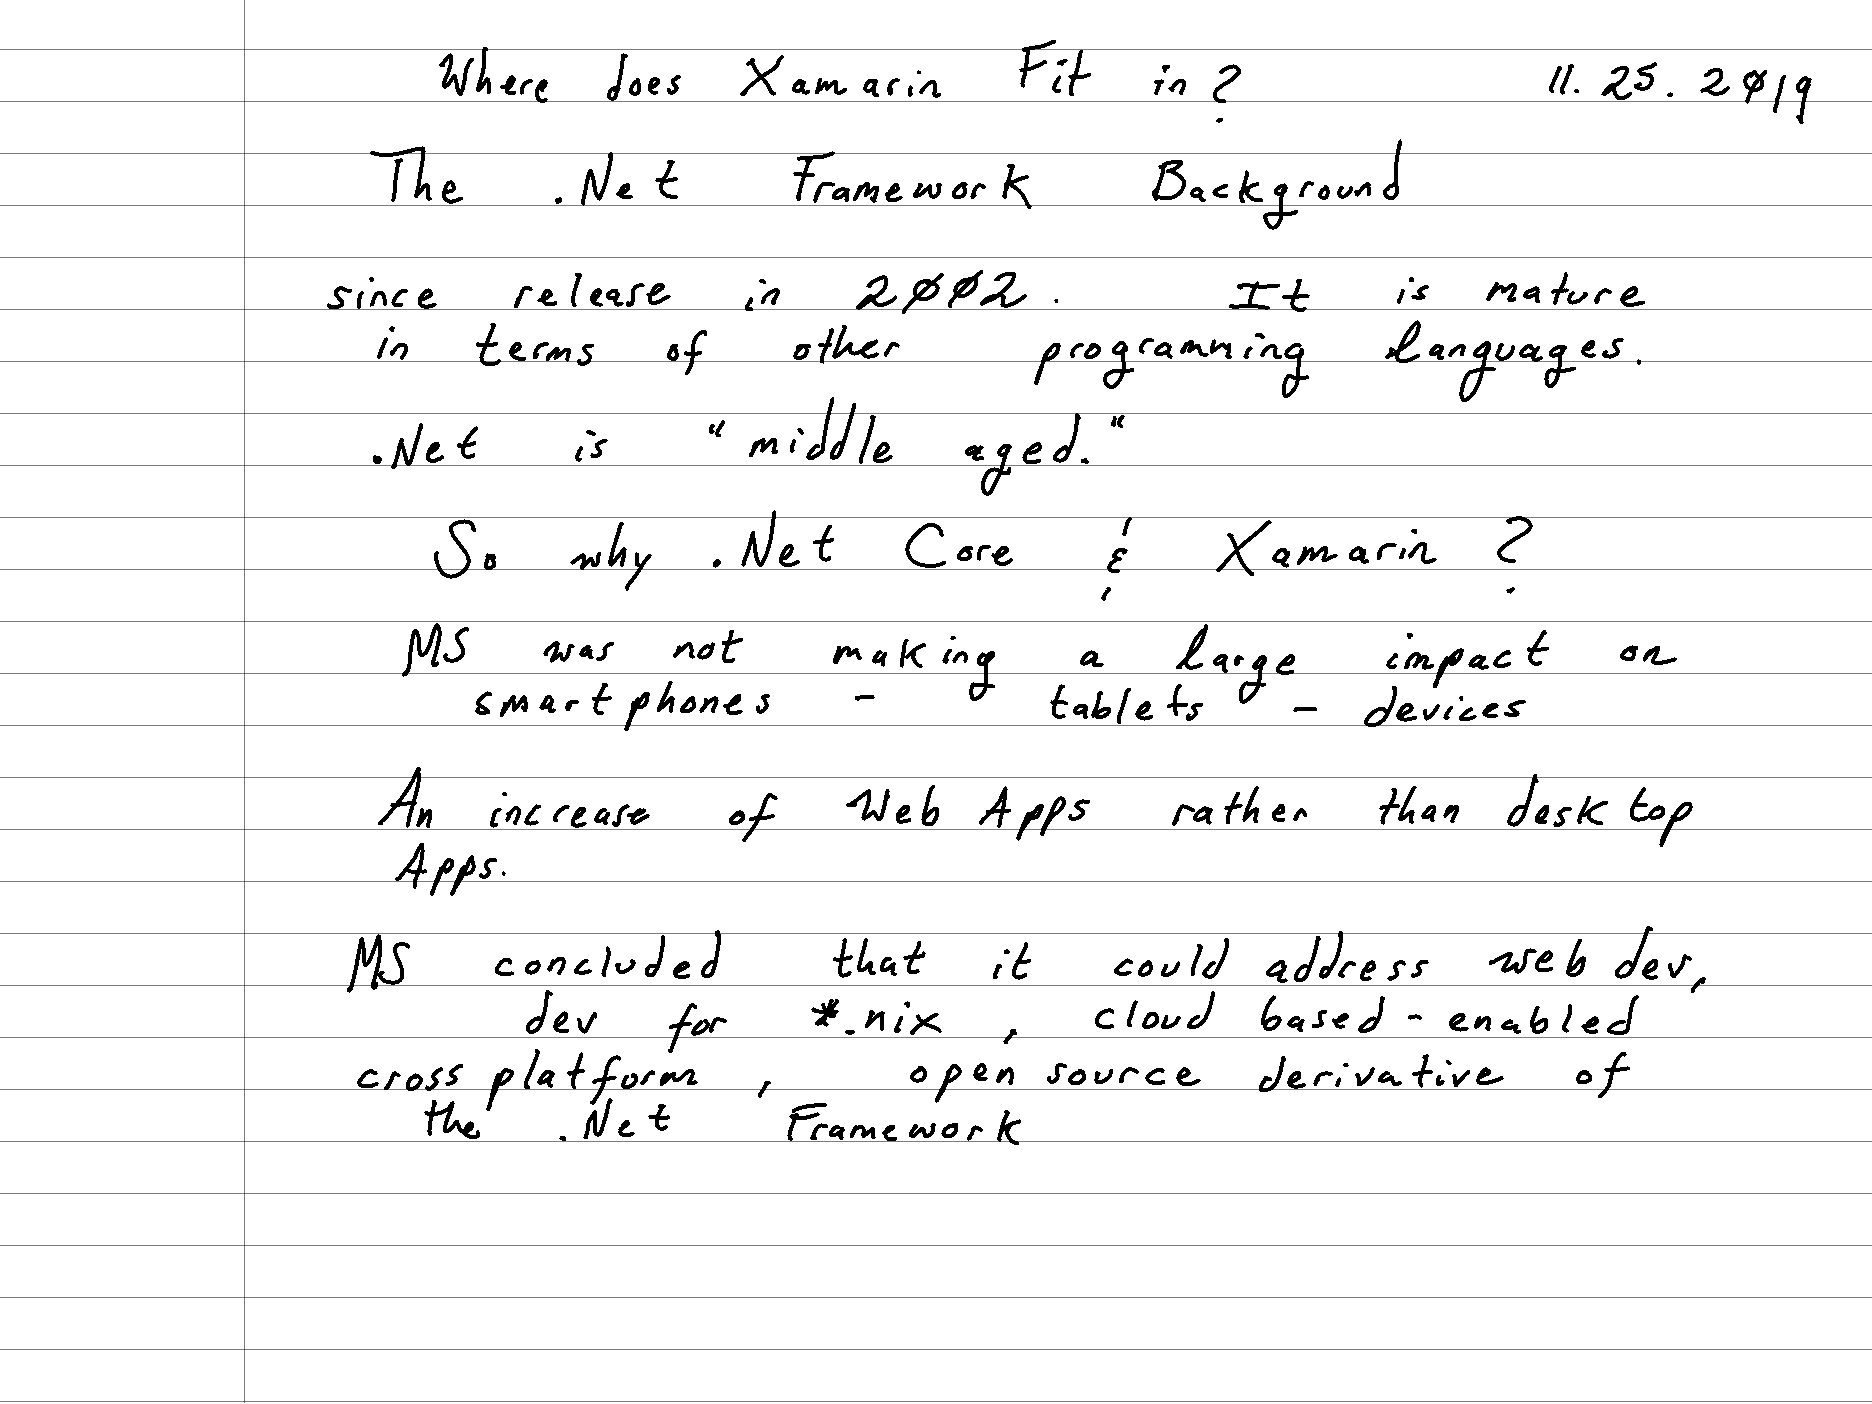 Where does Xamarin Fit in? 11.25.2019
The .Net Framework Background
since release in 2002. It is mature
in terms of other programming languages.
.Net is "middle aged."
So why .Net Core & Xamarin?
MS was not making a large impact on
smartphones - tablets - devices
An increase of Web Apps rather than desktop
Apps.
MS concluded that it could address web dev,
dev for *.nix, cloud based-enabled
cross platform, open source derivative of
the .Net Framework